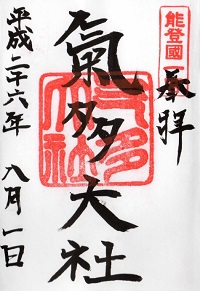 能登國一
奉拝
氣多大社
平成二十六年
八月一日